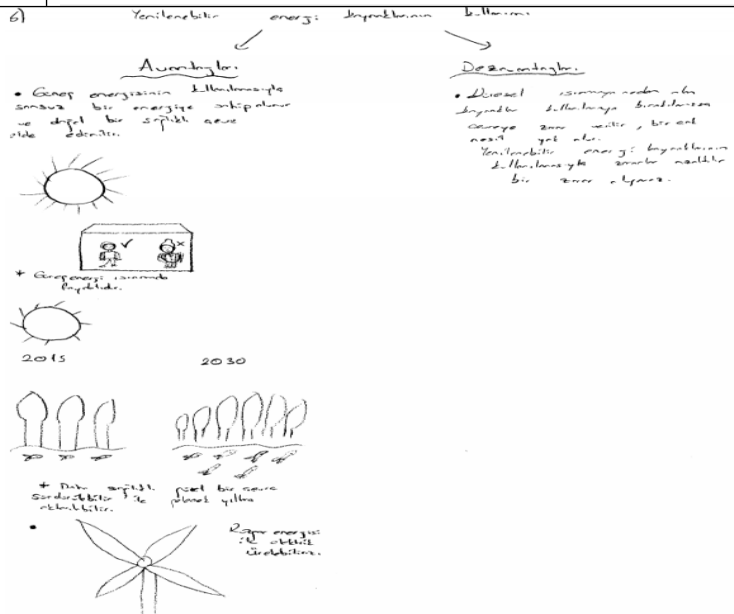 6) Yenilenebilir enerji kaynaklarının kullanımı
Avantajları
• Güneş enerjisinin kullanılmasıyla
sonsuz bir enerjiye sahip olunur
ve doğal bir sağlıklı çevre
elde edinilir.
* Güneş enerji ısınmada
faydalıdır.
2015 2030
* Daha sağlıklı güzel bir çevre
sürdürülebilir ile gelecek yıllara
aktarılabilir.
• Rüzgar enerjisi
ile elektrik
üretebiliriz.
Dezavantajları
• Küresel ısınmaya neden olan
kaynaklar kullanılmaya bırakılmazsa
çevreye zarar verilir, bir çok
nesil yok olur.
Yenilenebilir enerji kaynaklarının
kullanılmasıyla zararlar azaltılır
bir zarar